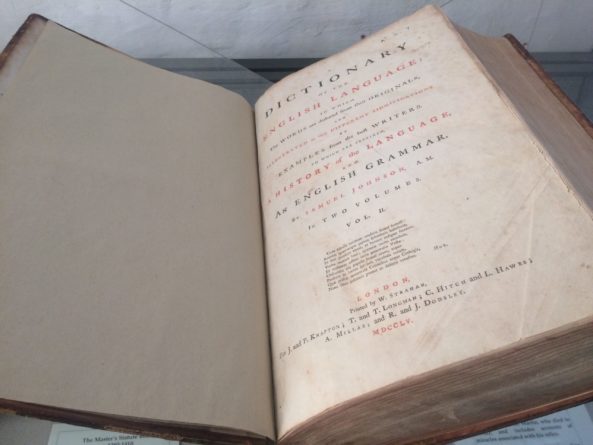 A
DICTIONARY
OF THE
ENGLISH LANGUAGE:
IN WHICH
The WORDS are deduced from their ORIGINALS,
AND
ILLUSTRATED in their DIFFERENT SIGNIFICATIONS
BY
EXAMPLES from the best WRITERS.
TO WHICH ARE PREFIXED,
A HISTORY of the LANGUAGE,
AND
AN ENGLISH GRAMMAR.
By SAMUEL JOHNSON, A.M.
In TWO VOLUMES.
VOL. II.
HOR.
LONDON,
Printed by W. STRAHAN,
For J. and P. KNAPTON; T. and T. LONGMAN; C. HITCH and L. HAWES;
A. MILLAR; and R. and J. DODSLEY.
MDCCLV.
The Master's Statute